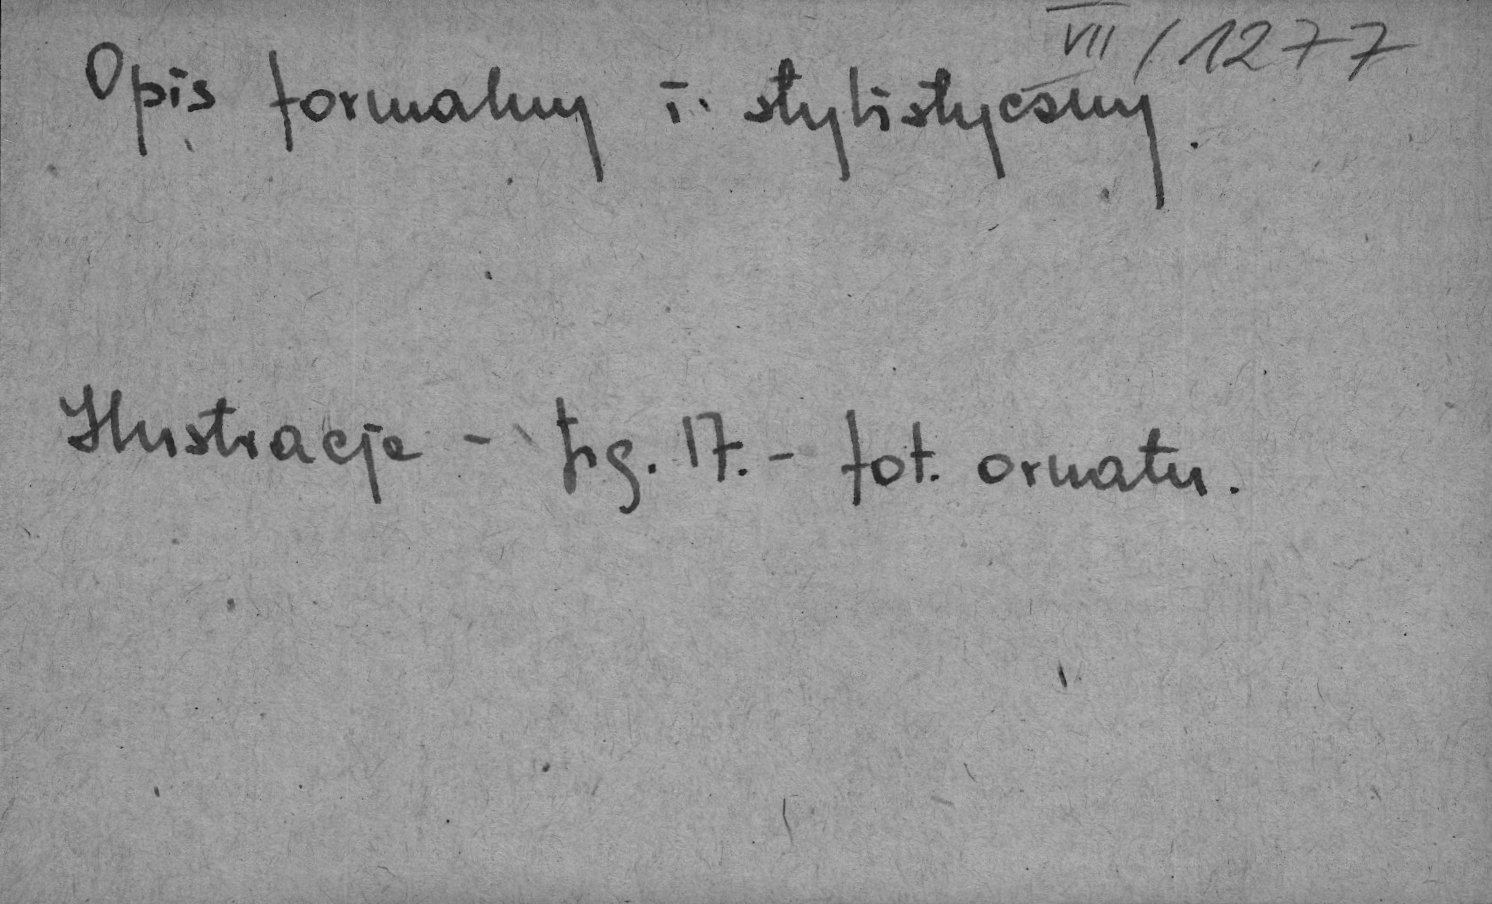 VII/1277
Opis formalny i stylistyczny.
Ilustracje - fig. 17. - fot. ornatu.